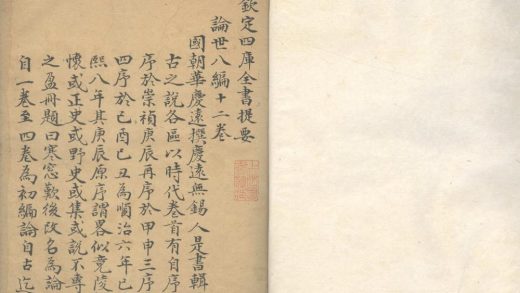 欽定四庫全書提要
論世八編十二卷
國朝華慶遠撰慶遠無錫人是書輯
古之說各區以時代卷首有自序
序於崇禎庚辰再序於甲申三序
四序於己酉己丑為順治六年己
熙八年其庚辰原序謂畧似竟陵
懷或正史或野史或集或說不專
之盈冊題曰寒窓歎後改名為論
自一卷至四卷為初編論自古迄